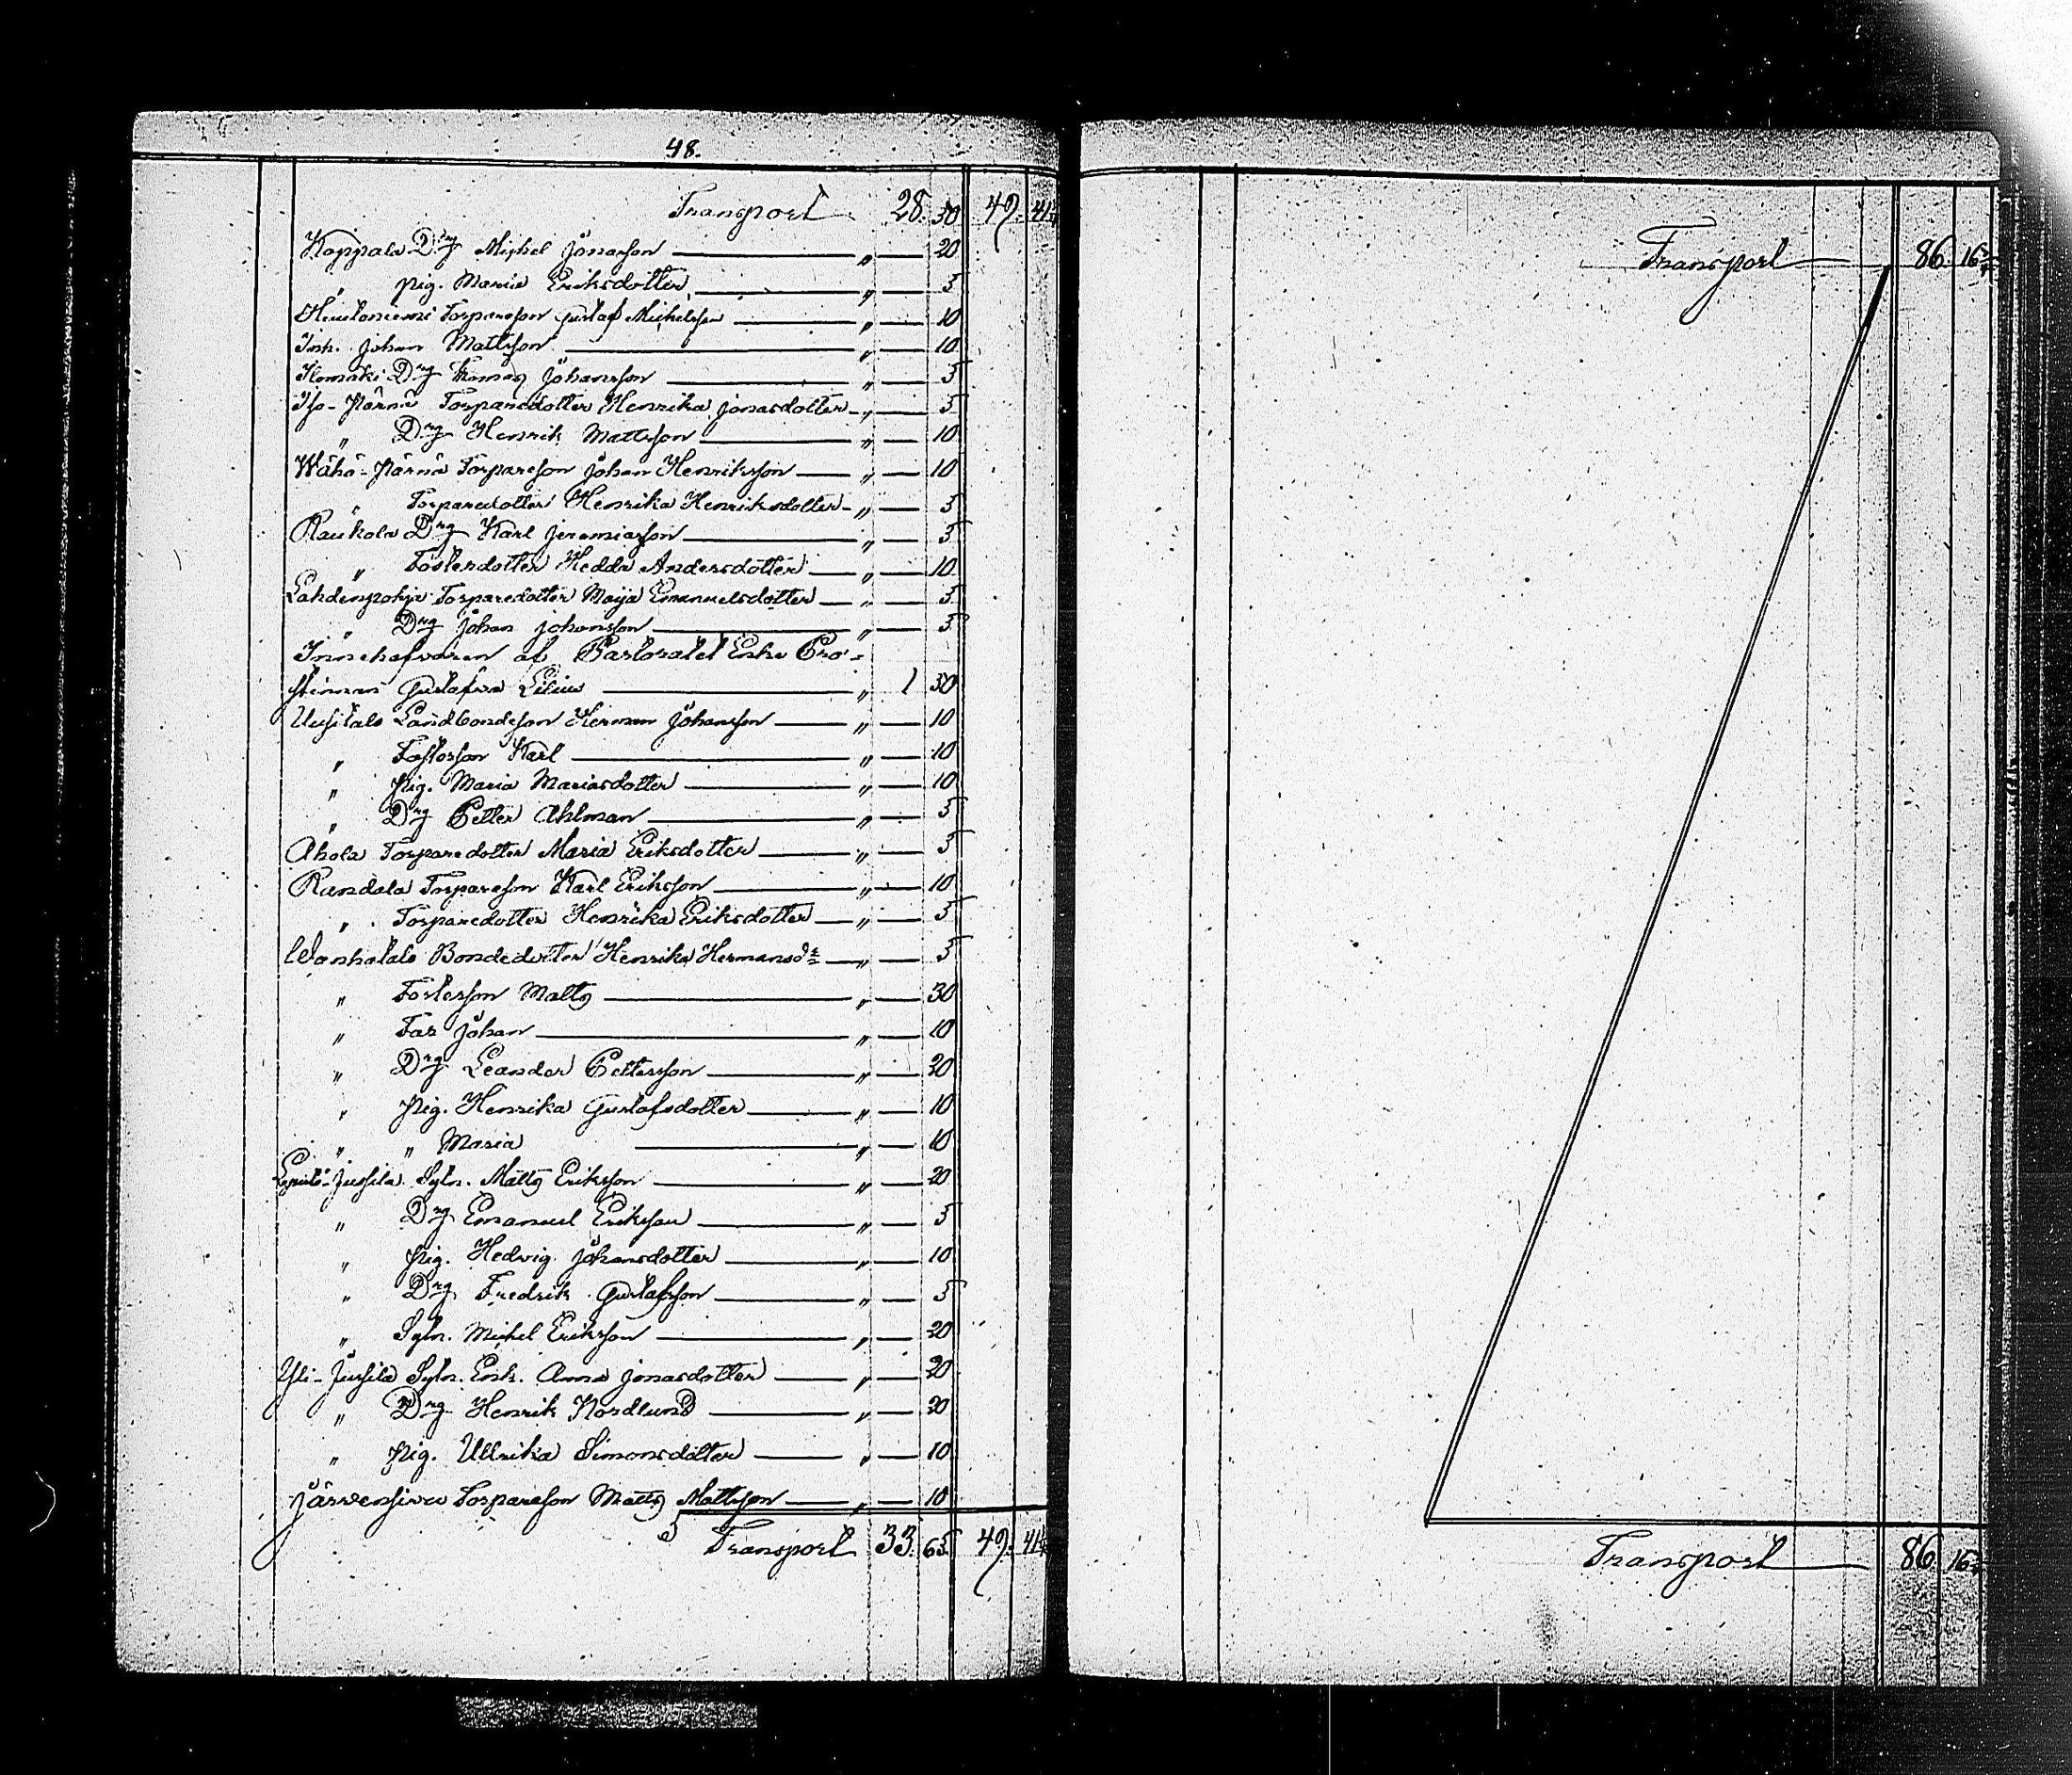 48.
Transport 28. 30 49. 41
Koppala Drg Michel Jonasson — " — 20
" pig. Maria Eriksdotter — " — 5
Hautaniemi Torpareson Gustaf Michelsson — " — 10
Inh. Johan Mattsson — " — 10
Komäki Drg Thomas Johansson — " — 5
Iso-Pärnä Torparedotter Henrika Jonasdotter — " — 5
" Drg Henrik Mattsson — " — 10
Wähä-Pärnä Torpareson Johan Henriksson — " — 10
" Torparedotter Henrika Henriksdotter — " — 5
Raukola Drg Karl Jeremiasson — " — 5
" Fosterdotter Hedda Andersdotter — " — 10
Lahdenpohja Torparedotter Maija Emanuelsdotter — " — 5
" Drg Johan Johansson — " — 5
Innehafvaren af Pastoratet Enke Pro-
stinnan Gustafva Lilius — " 1 30
Uusitalo Landbondeson Herman Johansson — " — 10
" Fosterson Karl — " — 10
" Pig. Maria Mariasdotter — " — 10
" Drg Petter Ahlman — " — 5
Ahola Torparedotter Maria Eriksdotter — " — 5
Randala Torpareson Karl Eriksson — " — 10
" Torparedotter Henrika Eriksdotter — " — 5
Wanhatalo Bondedotter Henrika Hermansdr — " — 5
" Fosterson Matts — " — 30
" Far Johan — " — 10
" Drg Leander Pettersson — " — 20
" Pig. Henrika Gustafsdotter — " — 10
" " Maria — " — 10
Jussila Sytn. Matts Eriksson — " — 20
" Drg Emanuel Eriksson — " — 5
" Pig. Hedvig Johansdotter — " — 10
" Drg Fredrik Gustafsson — " — 5
" Sytn. Michel Eriksson — " — 20
Yli-Jussila Sytn. Enk. Anna Jonasdotter — " — 20
" Drg Henrik Nordlund — " — 20
" Pig. Ullrika Simonsdotter — " — 10
Järvensivu Torpareson Matts Mattsson — " — 10
Transport 33. 65. 49. 41
Transport 86. 16
Transport 86. 16